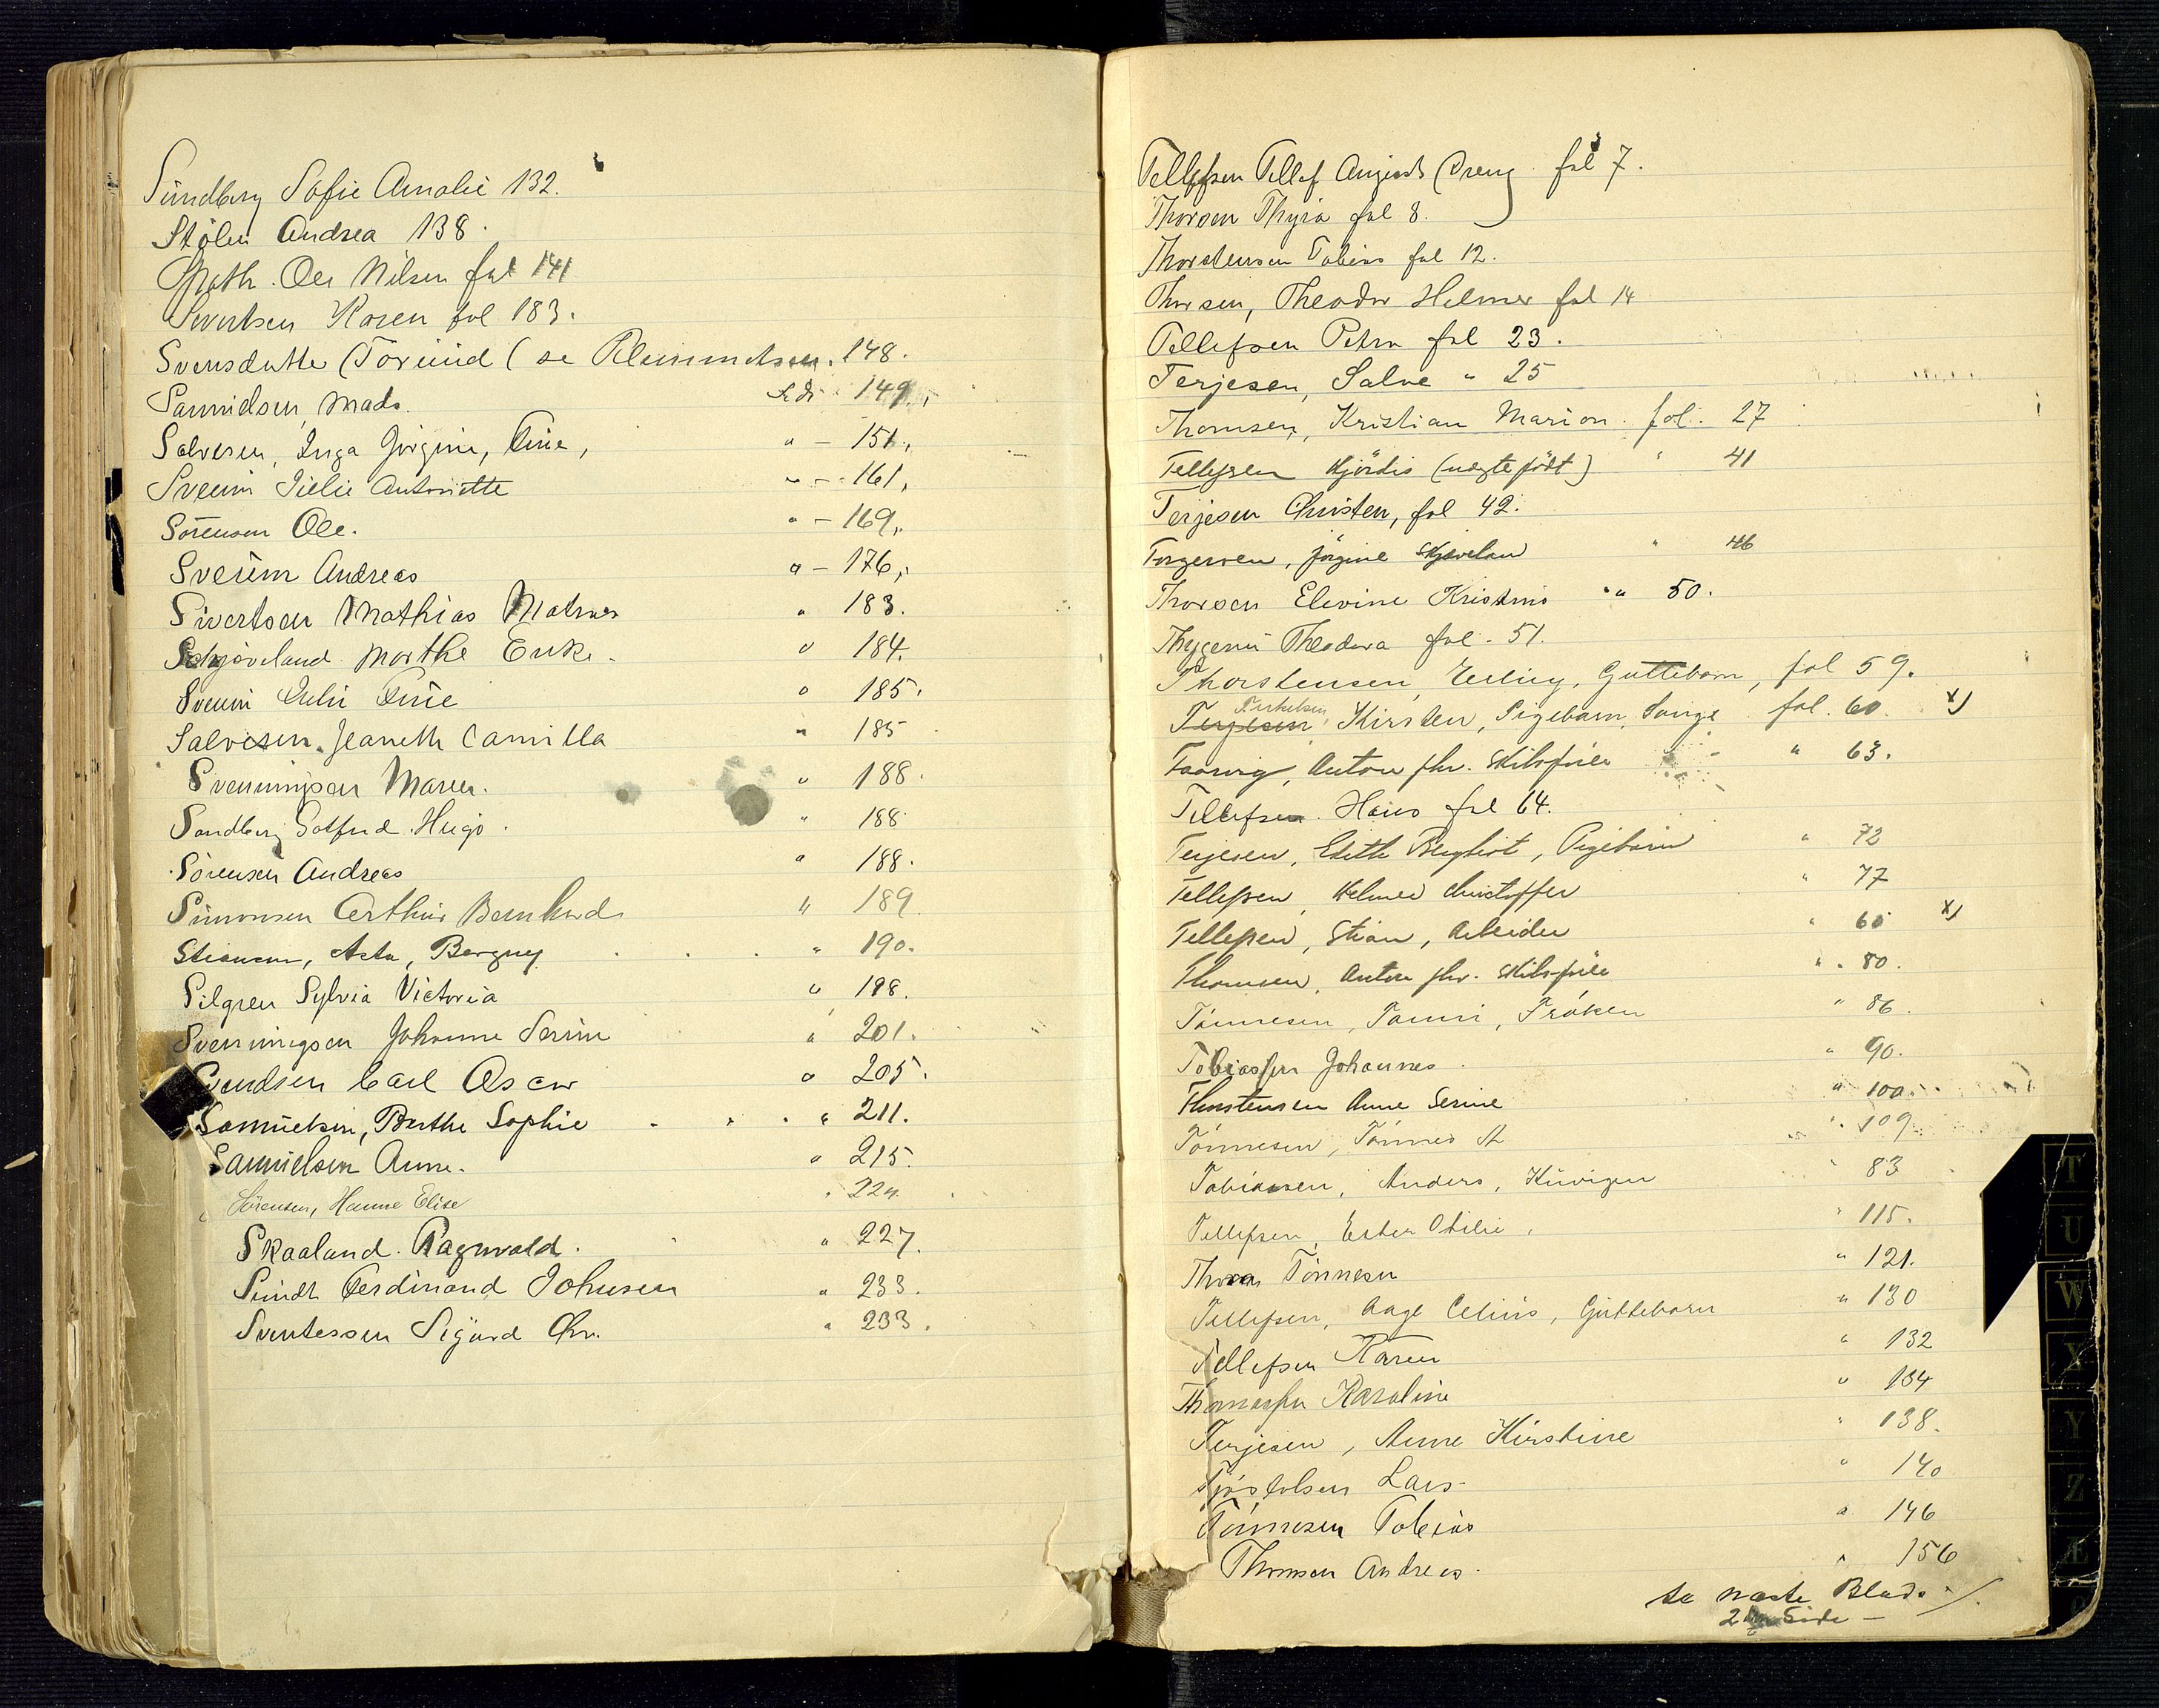 Sundberg Sofie Amalie 132.
Stølen Andrea 138.
Ole Nilsen fol 141
Sivertsen Karen fol 183.
Svensdatter (Torunid ( se 148.
Samuelsen, Mads. Side 149,
Salvesen, Inga Jörgine, Tine, " – 151,
Sveum Julie Antonette " – 161,
Sörensen Ole. " – 169,
Sveum Andreas " – 176,
Sivertsen Mathias " 183.
Schjøveland Marthe Enke. " 184.
Sveum Julie Tine " 185.
Salvesen. Jeaneth Camilla " 185
Svenningsen Maren. " 188.
Sandberg Gotfred. Hugo. " 188.
Sörensen Andreas " 188.
Simonsen Arthur Bernhard " 189
Stiansen, Asta, Bergny " 190.
Silgren Sylvia Victoria " 198.
Svenningsen Johanne Serine " 201.
Svendsen Carl Oscar " 205.
Samuelsen, Berthe Sophie " 211.
Samuelsen Anne. " 215.
Sörensen, Hanne Elise " 224
Skaaland. Ragnvald. " 227.
Sundt Ferdinand Johnsen " 233.
Sigurd Chr. " 233.
Tellefsen Tellef August (Dreng fol 7.
Thorsen Thyra fol 8.
Thorstensen Tobias fol 12.
Thorsen, Theodor Helmer fol 14
Tellefsen Petra fol 23.
Terjesen, Salve " 25
Thomsen, Kristian Marion. fol. 27
Tellefsen Hjördis (uægte födt) " 41
Terjesen Christen, fol 42.
Torgersen, Jörgine Skjævelan " 46
Thorsen Elevine Kristine " 50.
Theodora fol. 51.
Thorstensen, Erling, Guttebarn, fol 59.
Terkelsen
Terjesen, Kirsten, Pigebarn, Songe fol. 60. x)
Anton fhv. Skibsfører " 63.
Tellefsen. Hans fol 64.
Terjesen, Edith Bergliot, Pigebarn " 72
Tellefsen, Helmer Christoffer " 77
Tellefsen, Stian, Arbeider " 65 x)
Thomsen, Anton fhv. Skibsfører " 80.
Tönnesen, Tomine, Fröken " 86.
Tobiassen Johannes " 90.
Thorstensen Anne Serine " 100.
Tönnesen, Tönnes A " 109
Tobiassen, Anders, Kuvigen " 83
Tellefsen, Ester Otilie, " 115.
Thora Tönnesen " 121.
Tellefsen, Aage Celius, Guttebarn " 130
Tellefsen Karen " 132
Thomassen Karoline " 134
Terjesen, Anne Kirstine " 138.
Tjøstolsen Lars " 140
Tönnesen Tobias " 146
Thomsen Andreas. " 156
se næste Blads /.
2den Side –
T
U
W
X
Y
Z
Æ